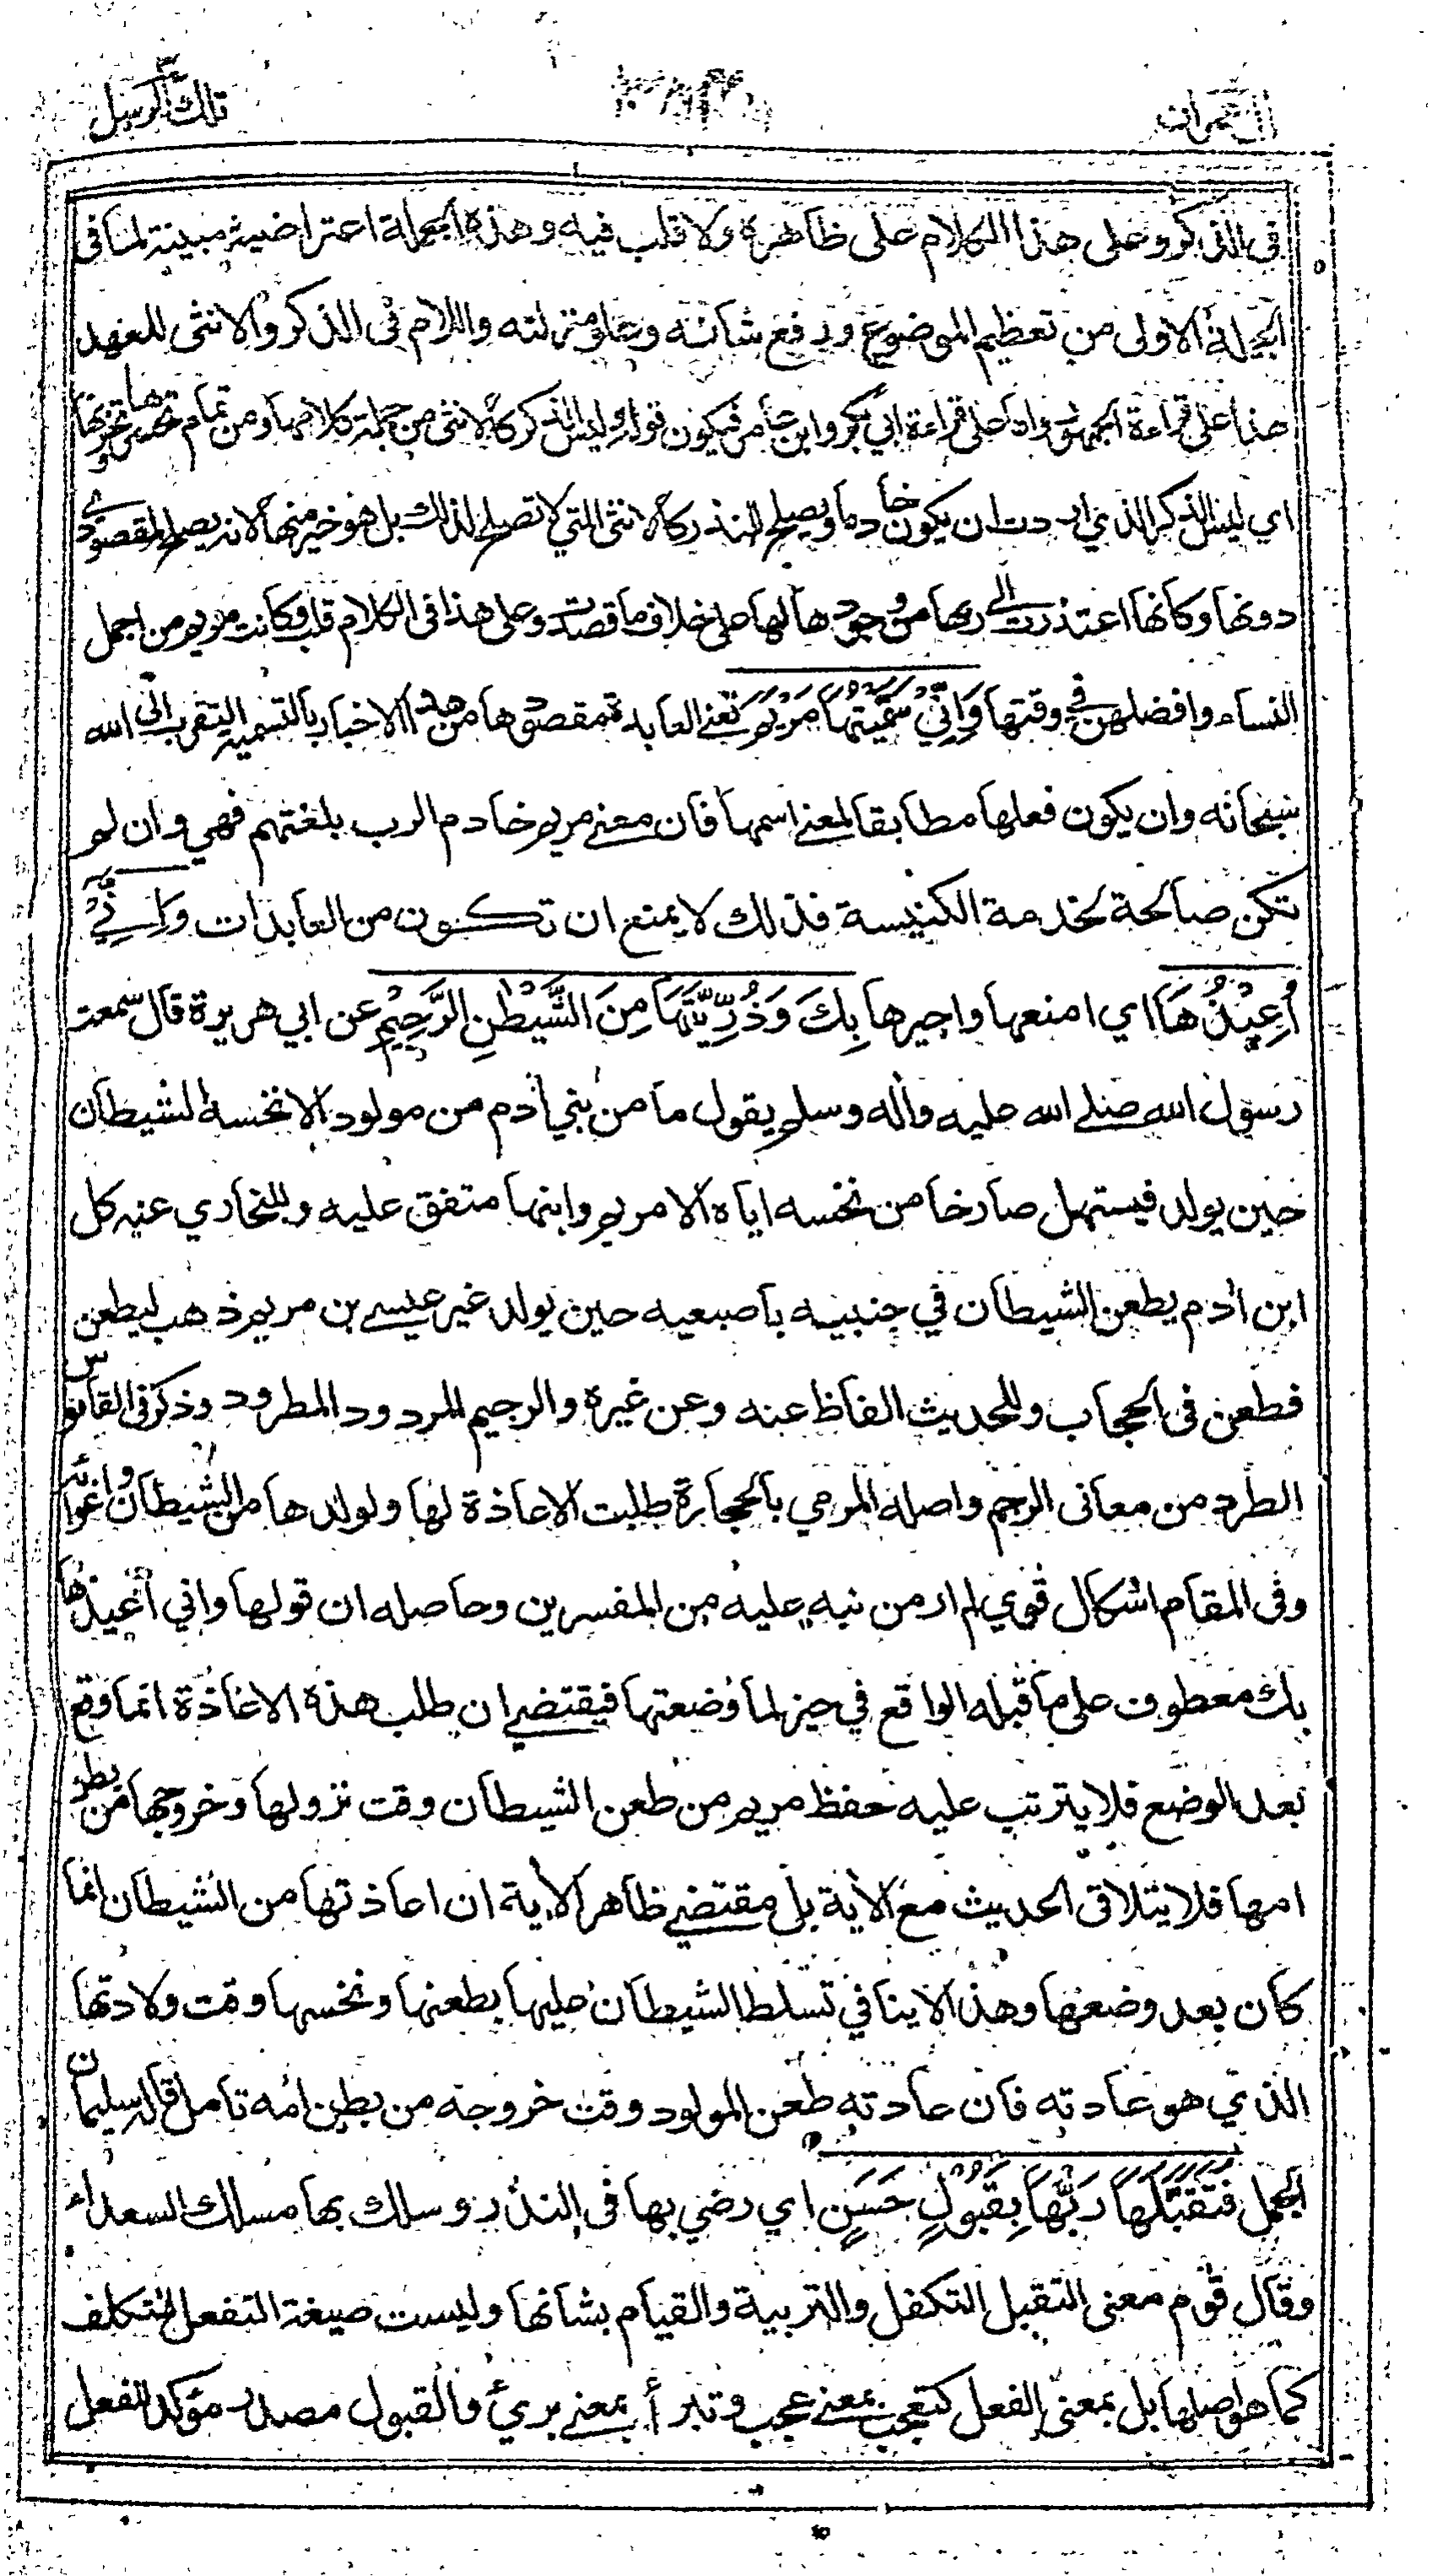 تلك الرسل
آل عمران
في الذكر وعلى هذا الكلام على ظاهره ولا قلب فيه وهذه الجملة اعتراضية مبينة لما في
الجملة الاولى من تعظيم الموضوع ورفع شانه وعلو منزلته واللام في الذكر والانثى للعهد
هذا على قراءة الجمهور واما على قراءة ابي بكر وابن عامر فيكون قوله وليس الذكر كالانثى من جملة كلامها ومن تمام تحسرها وتحزنها
اي ليس الذكر الذي اردت ان يكون خادما ويصلح للنذر كالانثى التي لا تصلح لذلك بل هو خير منها لانه يصلح لمقصودي
دونها وكانها اعتذرت الى ربها من وجودها لها على خلاف ما قصدت وعلى هذا في الكلام قلب وكانت مريم من اجمل
النساء وافضلهن في وقتها وَاِنِّي سَمَّيْتُهَا مَرْيَمَ تعني العابدة مقصودها من هذا الاخبار بالتسمية التقرب الى الله
سبحانه وان يكون فعلها مطابقا لمعنى اسمها فان معنى مريم خادم الرب بلغتهم فهي وان لم
تكن صالحة لخدمة الكنيسة فذلك لا يمنع ان تكون من العابدات وَاِنِّيْ
أُعِيْذُهَا اي امنعها واجيرها بِكَ وَذُرِّيَّتَهَا مِنَ الشَّيْطٰنِ الرَّجِيْمِ عن ابي هريرة قال سمعت
رسول الله صلى الله عليه وأله وسلم يقول ما من بني أدم من مولود الا نخسه الشيطان
حين يولد فيستهل صارخا من نخسه اياه الا مريم وابنها متفق عليه وللبخاري عنه كل
ابن أدم يطعن الشيطان في جنبيه باصبعيه حين يولد غير عيسى بن مريم ذهب ليطعن
فطعن في الحجاب وللحديث الفاظ عنه وعن غيره والرجيم المردود المطرود وذكر في القاموس
الطرد من معاني الرجم واصله المرمي بالحجارة طلبت الاعاذة لها ولولدها من الشيطان واغوائه
وفي المقام اشكال قوي لم ار من نبه عليه من المفسرين وحاصله ان قولها واني أعيذها
بك معطوف على ما قبله الواقع في حيز لما وضعتها فيقتضي ان طلب هذه الاعاذة انما وقع
بعد الوضع فلا يترتب عليه حفظ مريم من طعن الشيطان وقت نزولها وخروجها من بطن
امها فلا يتلاقى الحديث مع الأية بل مقتضى ظاهر الأية ان اعاذتها من الشيطان انما
كان بعد وضعها وهذا لا ينافي تسلط الشيطان عليها بطعنها ونخسها وقت ولادتها
الذي هو عادته فان عادته طعن المولود وقت خروجه من بطن امه تامل قاله سليمان
الجمل فَتَقَبَّلَهَا رَبُّهَا بِقَبُوْلٍ حَسَنٍ اي رضي بها في النذر وسلك بها مسلك السعداء
وقال قوم معنى التقبل التكفل والتربية والقيام بشانها وليست صيغة التفعل للتكلف
كما هو اصلها بل بمعنى الفعل كتعجب بمعنى عجب وتبرأ بمعنى بريئ والقبول مصدر مؤكد للفعل